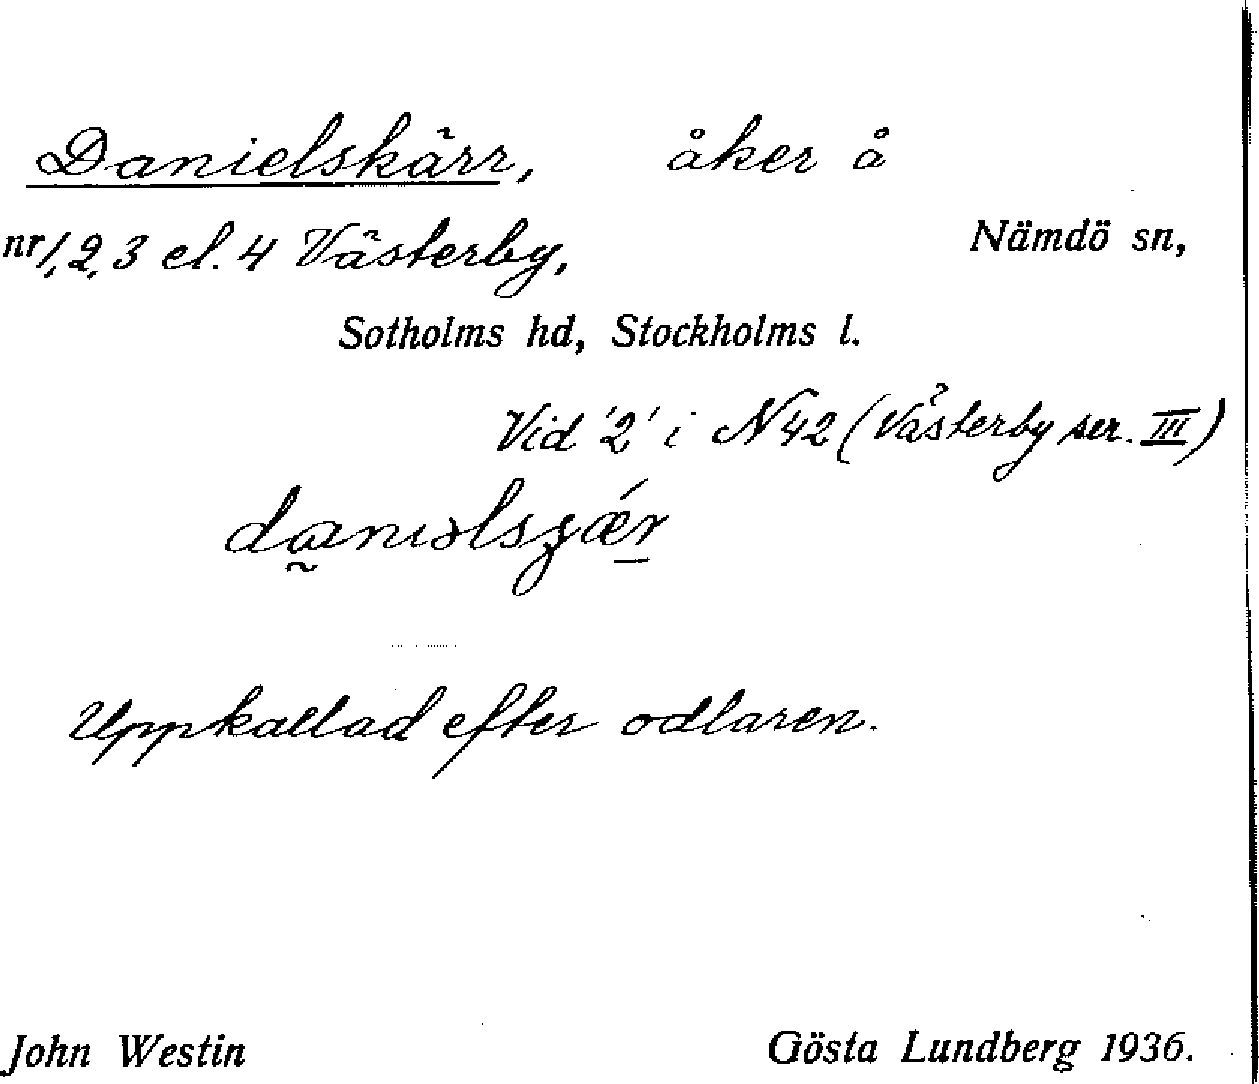 Danielskärr, åker å
nr 1, 2, 3 el. 4 Västerby, Nämdö sn,
Sotholms hd, Stockholms l.
Vid '2' i N 42 (Västerby ser. III)
Uppkallad efter odlaren.
John Westin Gösta Lundberg 1936.